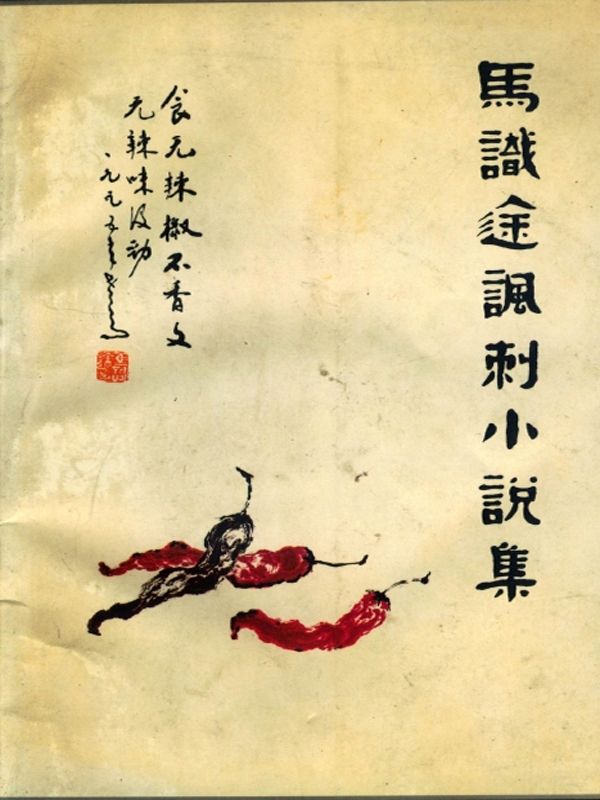 馬識途諷刺小説集
食无辣椒不香文
无辣味没劲
一九九五